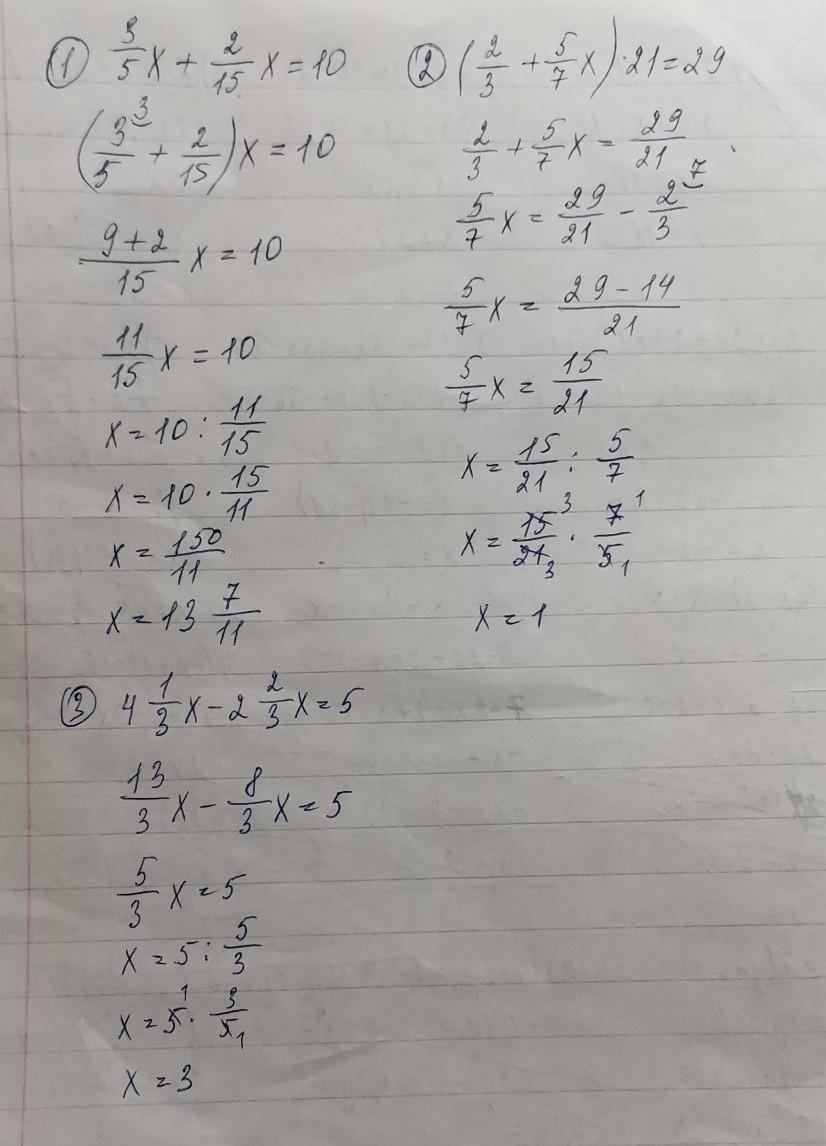 ① 3/5 x + 2/15 x = 10
(3/5 ³ + 2/15) x = 10
(9+2)/15 x = 10
11/15 x = 10
x = 10 : 11/15
x = 10 · 15/11
x = 150/11
x = 13 7/11
② (2/3 + 5/7 x) · 21 = 29
2/3 + 5/7 x = 29/21
5/7 x = 29/21 - 2/3 ⁷
5/7 x = (29-14)/21
5/7 x = 15/21
x = 15/21 : 5/7
x = 15³/21₃ · 7¹/5₁
x = 1
③ 4 1/3 x - 2 2/3 x = 5
13/3 x - 8/3 x = 5
5/3 x = 5
x = 5 : 5/3
x = 5¹ · 3/5₁
x = 3